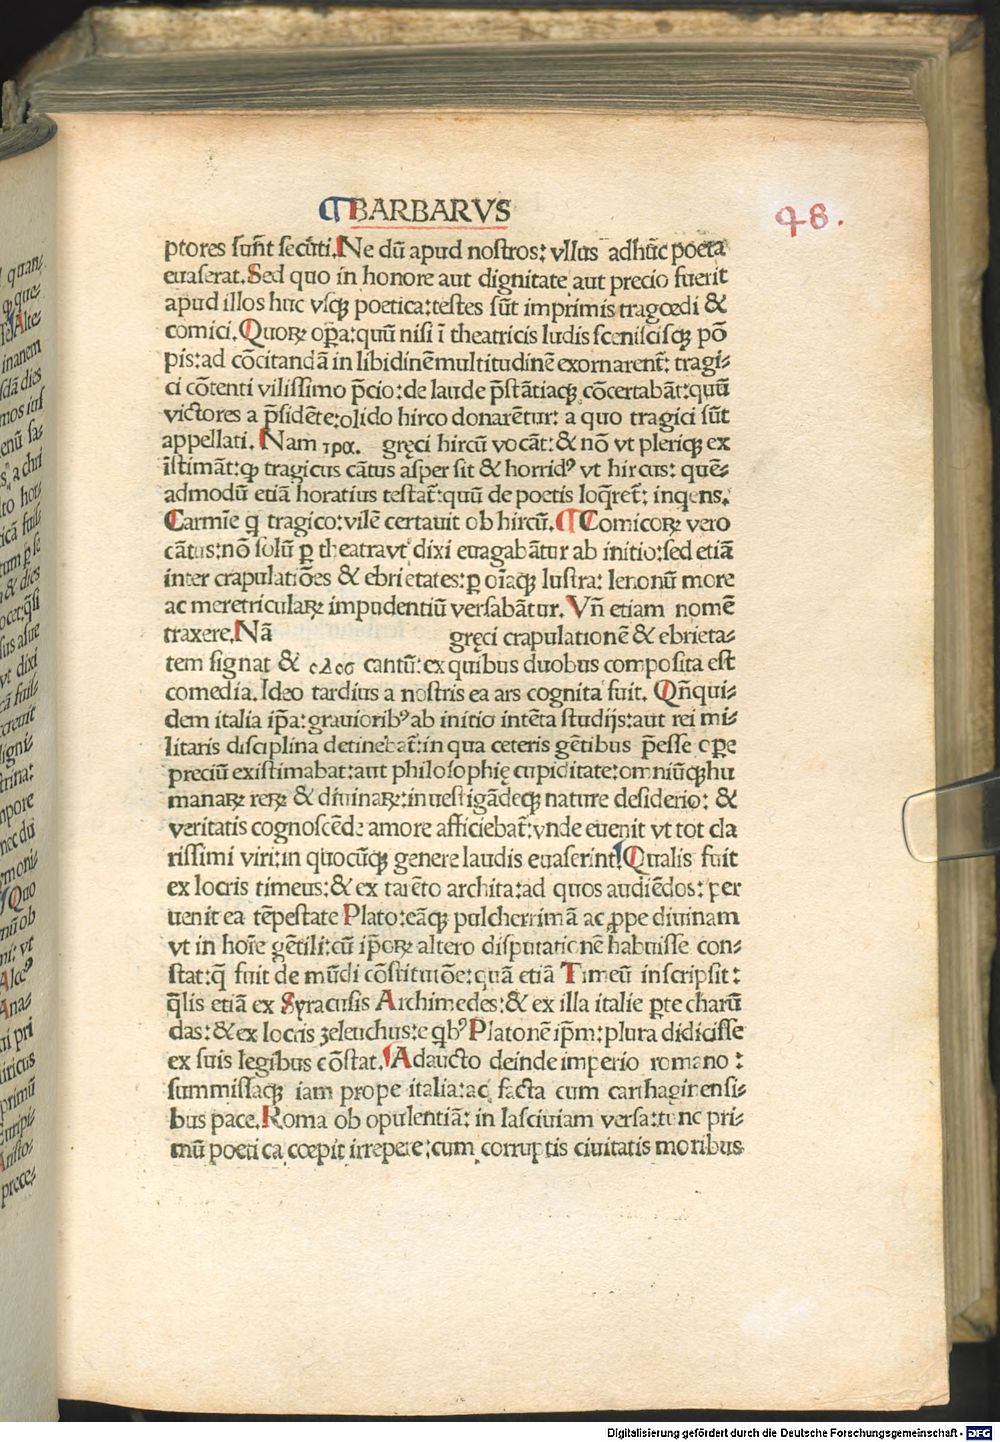 ¶BARBARVS
48.
ptores sunt̄ secūti. Ne dū apud nostros: vllus adhūc poeta
euaserat. Sed quo in honore aut dignitate aut precio fuerit
apud illos huc vsq̨ poetica: testes sūt imprimis tragœdi &
comici. Quoꝝ oꝑa: quū nisi ī theatricis ludis scenicisq̨ pō
pis: ad cōcitandā in libidinē multitudinē exornarent̄: tragi-
ci cōtenti vilissimo p̄cio: de laude p̄stātiaq̨ cōcertabāt: quū
victores a p̄sidēte: olido hirco donarētur: a quo tragici sūt
appellati. Nam τρα. gręci hircū vocāt: & nō vt pleriq̨ ex
īstimāt: ꝙ tragicus cātus asper sit & horridꝰ vt hircus: quē-
admodū etiā horatius testat̄: quū de poetis loq̄ret̄: inqens.
Carmīe q̄ tragico: vilē certauit ob hircū. ¶ Comicoꝝ vero
cātus: nō solū ꝑ theatra vt dixi euagabātur ab initio: sed etiā
inter crapulatiōes & ebrietates: ꝑ oīaq̨ lustra: lenonū more
ac meretriculaꝝ impudentiū versabātur. Vn̄ etiam nomē
traxere. Nā gręci crapulationē & ebrieta-
tem signāt & cantū: ex quibus duobus composita est
comedia. Ideo tardius a nostris ea ars cognita fuit. Qn̄qui-
dem italia ip̄a: grauioribꝰ ab initio intēta studijs: aut rei mi-
litaris disciplina detinebat̄: in qua ceteris gētibus p̄esse oꝑe
preciū existimabat: aut philosophię cupiditate: omniūq̨ hu
manaꝝ reꝝ & diuinaꝝ: inuestigādeq̨ nature desiderio: &
veritatis cognoscēde amore afficiebat̄: vnde euenit vt tot cla
rissimi viri: in quocūq̨ genere laudis euaserint. Qualis fuit
ex locris timeus: & ex tarēto archita: ad quos audiēdos: per
uenit ea tēpestate Plato: eāq̨ pulcherrimā ac ꝓpe diuinam
vt in hoīe gētili: cū ip̄oꝝ altero disputationē habuisse con-
stat: q̄ fuit de mūdi cōstitutōe: quā etiā Timeū inscripsit:
q̄lis etiā ex Syracusis Archimedes: & ex illa italie ꝑte charū
das: & ex locris zeleuchus: e qbꝰ Platonē ip̄m: plura didicisse
ex suis legibus cōstat. Adaucto deinde imperio romano:
summissaq̨ iam prope italia: ac facta cum carthaginensi-
bus pace. Roma ob opulentiā: in lasciuiam versa: tunc pri-
mū poetica cœpit irrepere: cum corruptis ciuitatis moribus
Digitalisierung gefördert durch die Deutsche Forschungsgemeinschaft - DFG